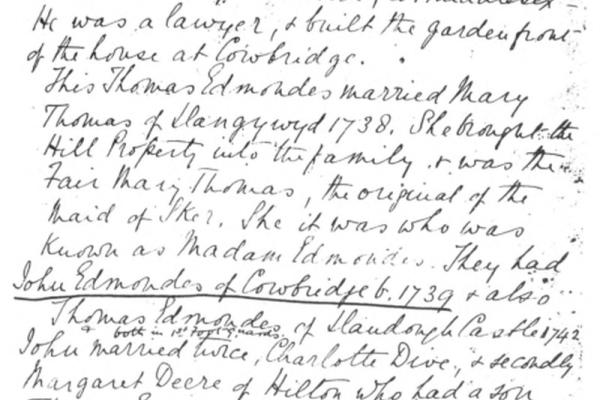 He was a lawyer, & built the garden front
of the house at Cowbridge.
This Thomas Edmondes married Mary
Thomas of Llangywyd 1738. She brought the
Hill Property into the family & was the
Fair Mary Thomas, the original of the
Maid of Sker. She it was who was
known as Madam Edmondes. They had
John Edmondes of Cowbridge b. 1739 & also
Thomas Edmondes of Llandough Castle 1742
& both in 1st Foot Guards.
John married twice, Charlotte Dive, & secondly
Margaret Deere of Hilton who had a son